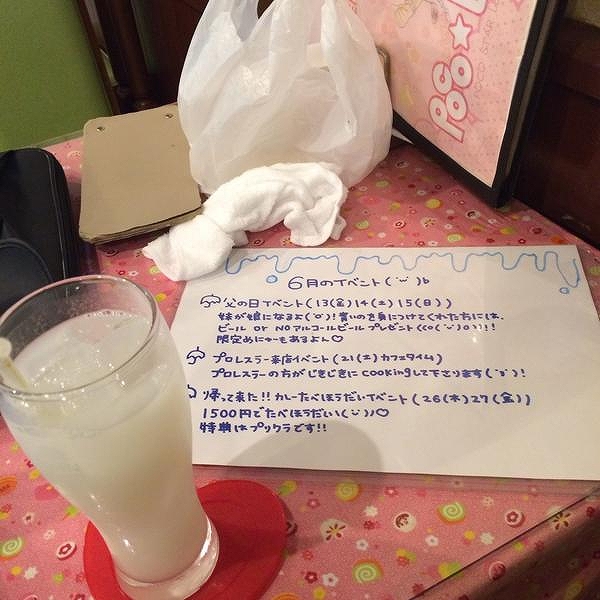 6月のイベント(˙˘˙)b
父の日イベント(13(金)14(土)15(日))
妹が娘になるよ(˙o˙)!青いのを身につけてくれた方には、
ビール or NOアルコールビールプレゼント
限定めにゅーもあるよん♡
プロレスラー来店イベント(21(土)カフェタイム)
プロレスラーの方がじきじきにcookingして下さります(˙³˙)!
帰って来た!!カレーたべほうだいイベント(26(木)27(金))
1500円でたべほうだい(˙˘˙)ノ♡
特典はプリクラです!!